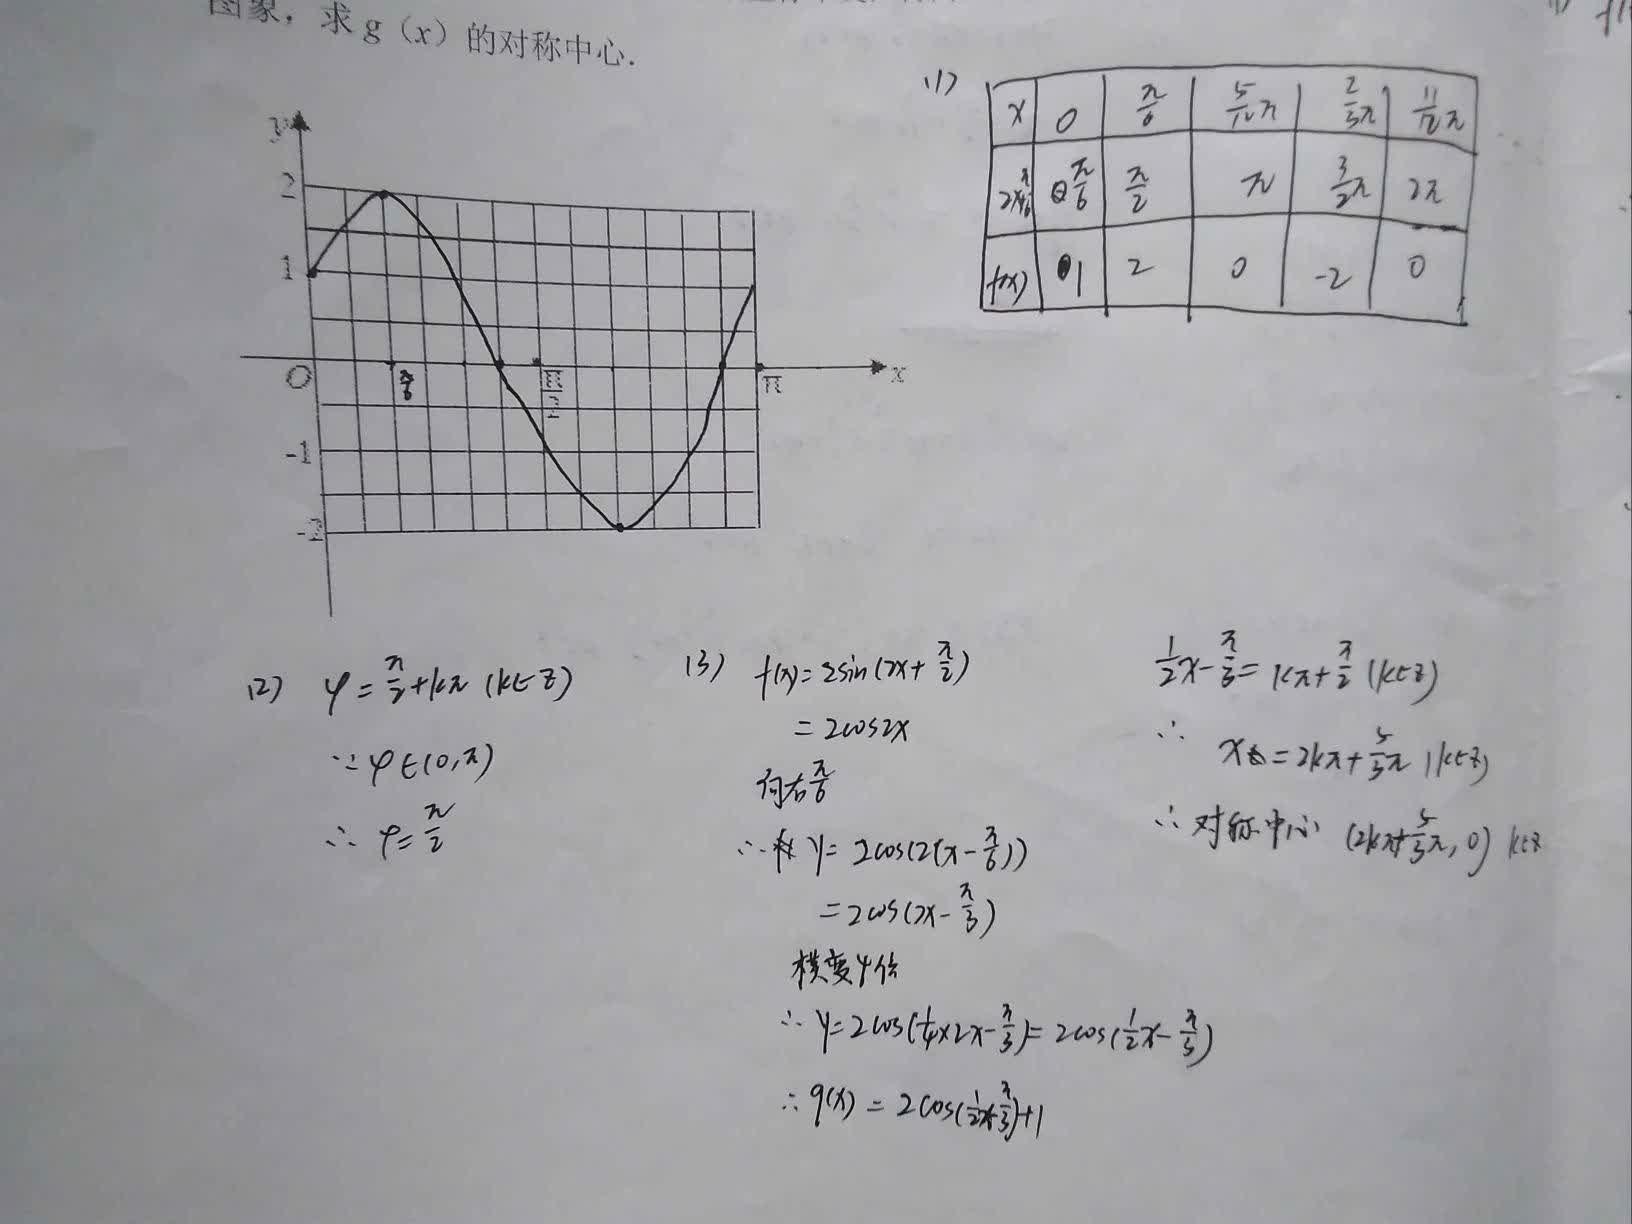 图象，求 g（x）的对称中心.
(1)
x 0 π/6 5/12π 2/3π 11/12π
2x+π/6 π/6 π/2 π 3/2π 2π
f(x) 1 2 0 -2 0
y
2
1
O π/6 π/2 π x
-1
-2
(2) φ=π/2+kπ (k∈Z)
∵φ∈(0,π)
∴φ=π/2
(3) f(x)=2sin(2x+π/2)
=2cos2x
向右π/6
∴ y=2cos(2(x-π/6))
=2cos(2x-π/3)
横变4倍
∴y=2cos(1/4×2x-π/3)=2cos(1/2x-π/3)
∴g(x)=2cos(1/2x-π/3)+1
1/2x-π/3=kπ+π/2 (k∈Z)
∴ x=2kπ+5/3π (k∈Z)
∴对称中心 (2kπ+5/3π,0) k∈Z